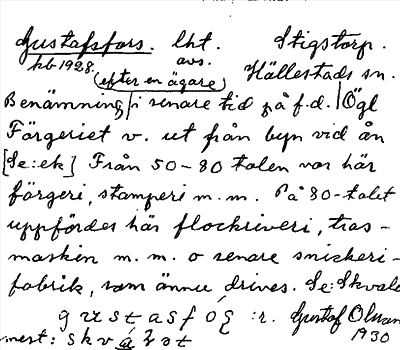 Gustafsfors. lht. Stigstorp.
kb 1928. avs. Hällestads sn.
(efter en ägare)
Benämning i senare tid på f.d. Ögl
Färgeriet v. ut från byn vid ån
[Se:ek] Från 50-80 talen var här
färgeri, stamperi m.m. På 80-talet
uppfördes här flockriveri, tras-
maskin m.m. o senare snickeri-
fabrik, som ännu drives. Se: Skvala
gustasfo :r. Gustaf Olson
1930
mest: skválat